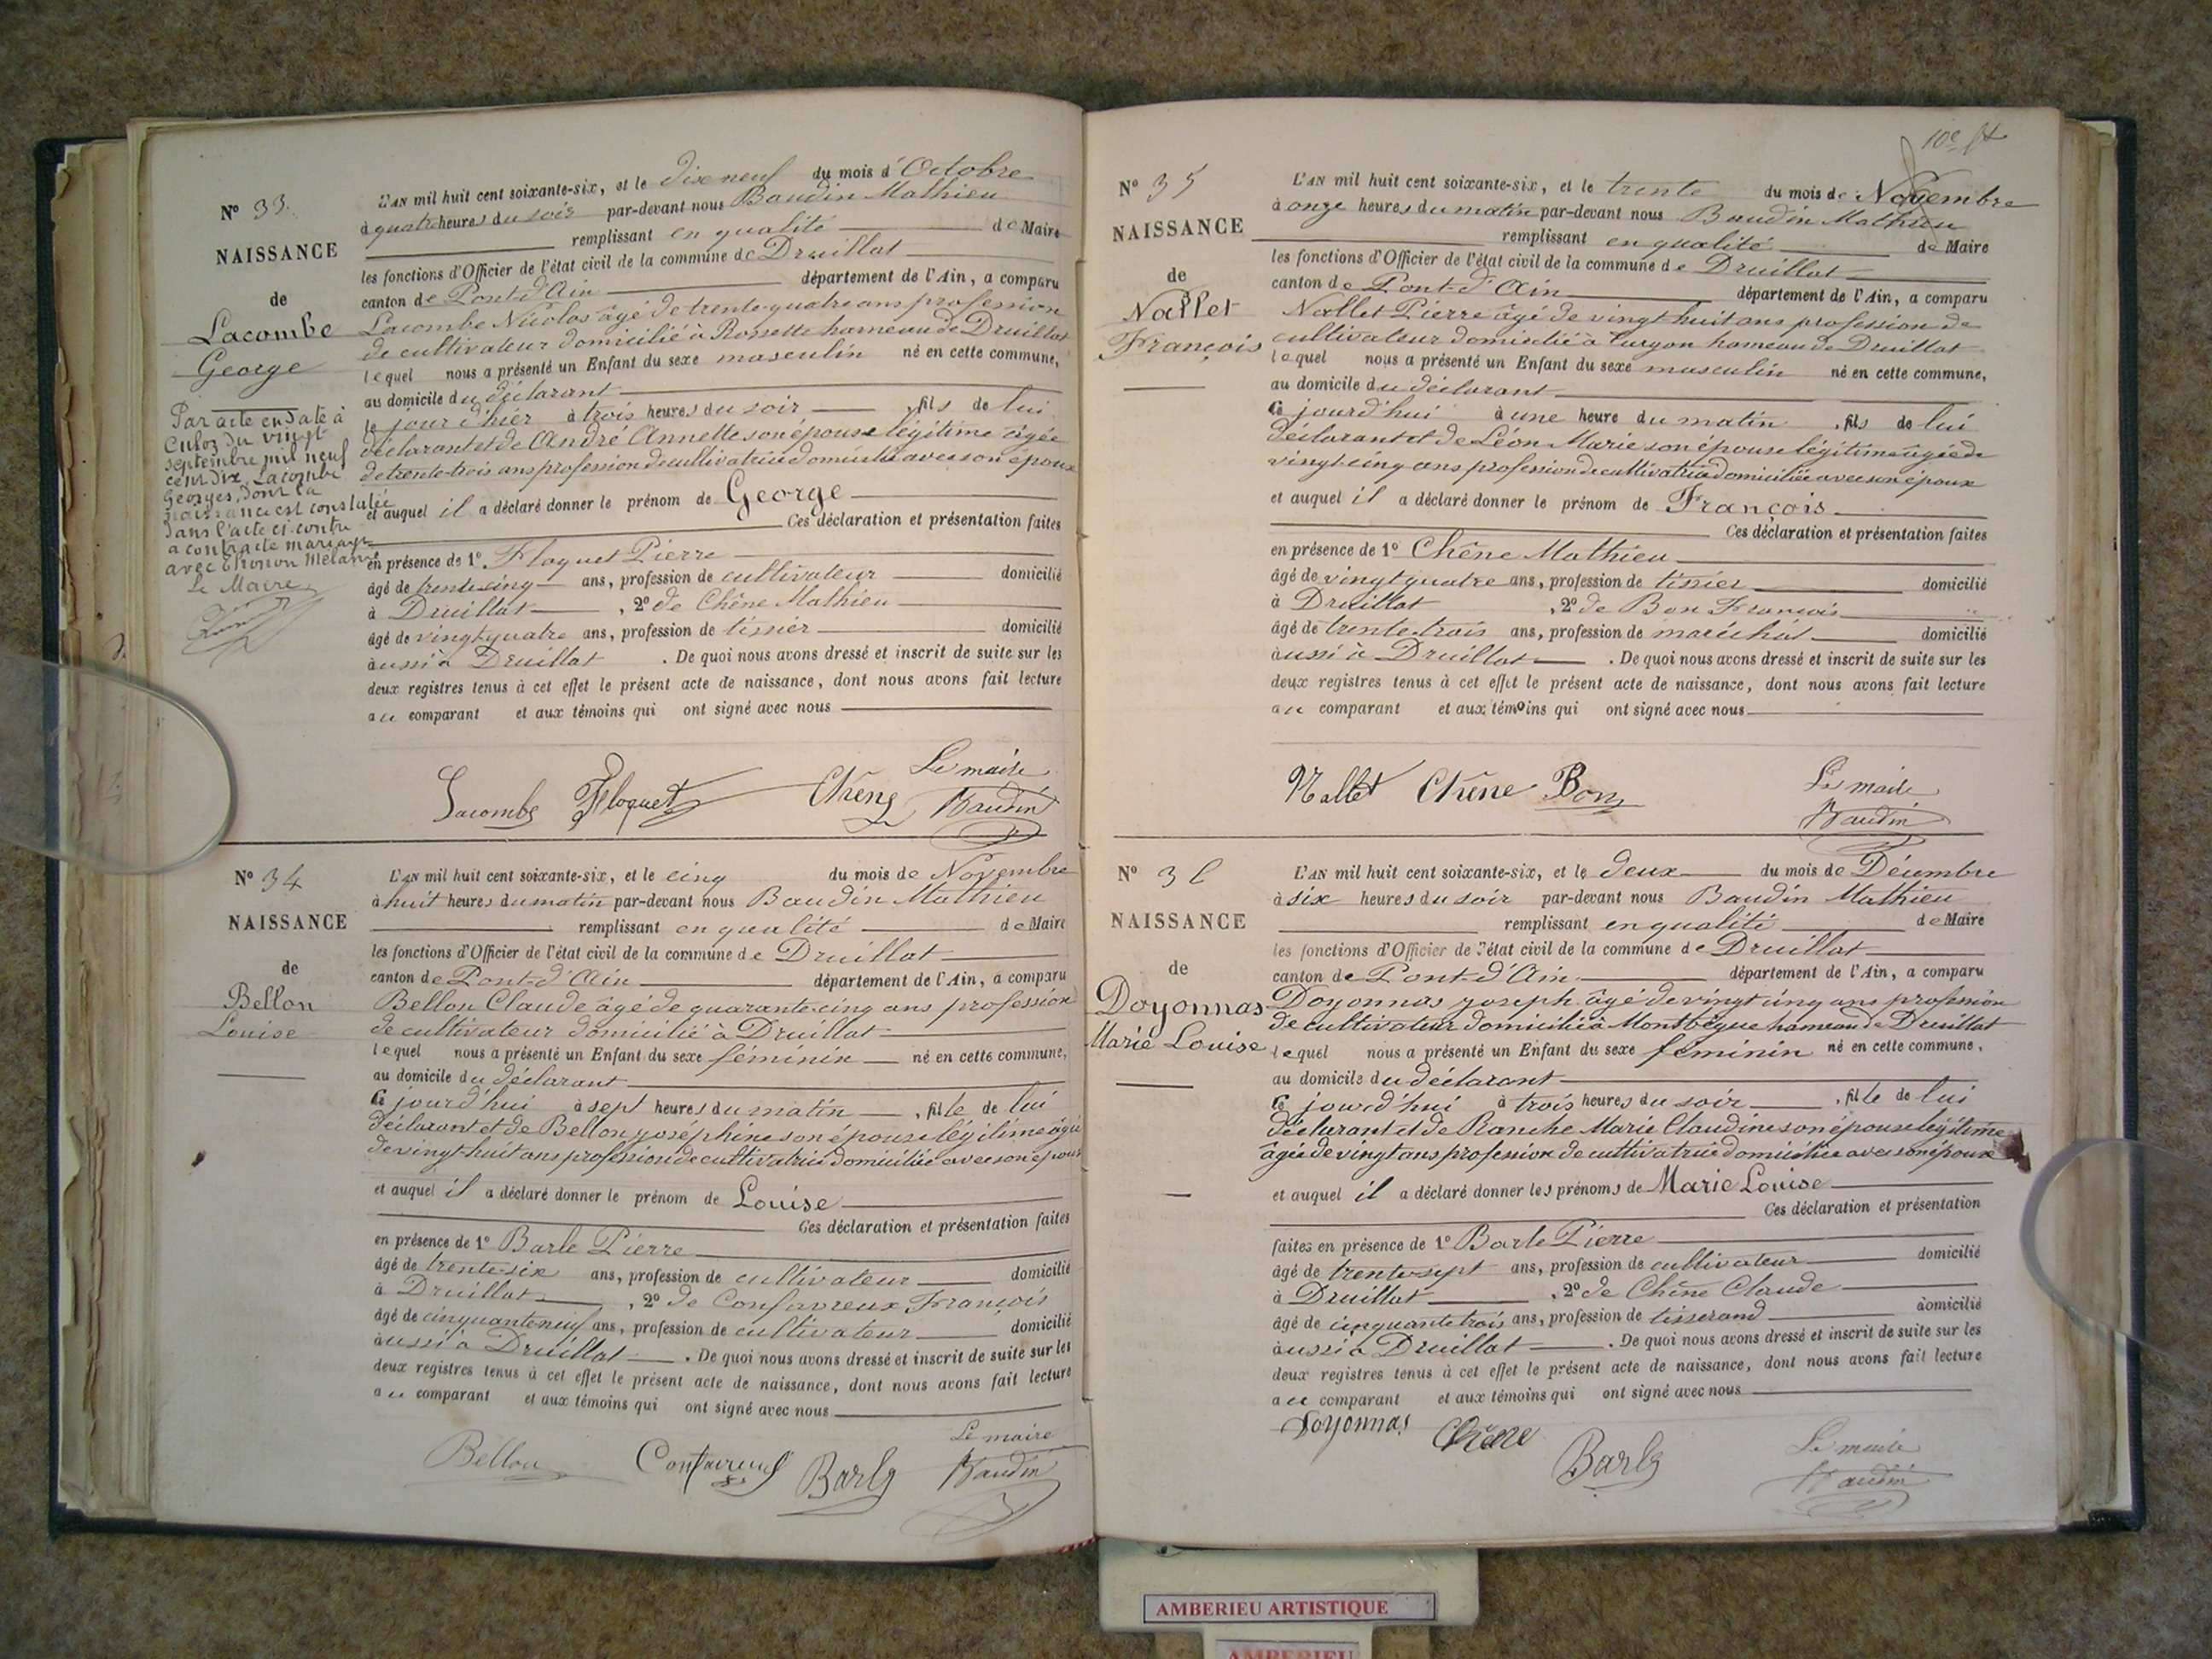 N° 33.
NAISSANCE
de
Lacombe
George
Par acte en date à
Culoz du vingt
septembre mil neuf
cent dix, Lacombe
Georges, dont la
naissance est constatée
dans l'acte ci-contre
a contracté mariage
avec Thonon Mélanie
Le Maire
L'AN mil huit cent soixante-six, et le dix neuf du mois d'Octobre
à quatre heures du soir par-devant nous Baudin Mathieu
remplissant en qualité de Maire
les fonctions d'Officier de l'état civil de la commune de Druillat
canton de Pont-d'Ain département de l'Ain, a comparu
Lacombe Nicolas âgé de trente-quatre ans profession
de cultivateur domicilié à Rossette hameau de Druillat
lequel nous a présenté un Enfant du sexe masculin né en cette commune,
au domicile du déclarant
le jour d'hier à trois heures du soir, fils de lui
déclarant et de André Annette son épouse légitime âgée
de trente-trois ans profession de cultivatrice domiciliée avec son époux
et auquel il a déclaré donner le prénom de George
Ces déclaration et présentation faites
en présence de 1° Floquet Pierre
âgé de trente-cinq ans, profession de cultivateur domicilié
à Druillat, 2° de Chêne Mathieu
âgé de vingt-quatre ans, profession de tissier domicilié
aussi à Druillat. De quoi nous avons dressé et inscrit de suite sur les
deux registres tenus à cet effet le présent acte de naissance, dont nous avons fait lecture
au comparant et aux témoins qui ont signé avec nous
Lacombe Floquet Chêne Le maire
Baudin
N° 34
NAISSANCE
de
Bellon
Louise
L'AN mil huit cent soixante-six, et le cinq du mois de Novembre
à huit heures du matin par-devant nous Baudin Mathieu
remplissant en qualité de Maire
les fonctions d'Officier de l'état civil de la commune de Druillat
canton de Pont-d'Ain département de l'Ain, a comparu
Bellon Claude âgé de quarante-cinq ans profession
de cultivateur domicilié à Druillat
lequel nous a présenté un Enfant du sexe féminin né en cette commune,
au domicile du déclarant
ce jourd'hui à sept heures du matin, fille de lui
déclarant et de Bellon Joséphine son épouse légitime âgée
de vingt-huit ans profession de cultivatrice domiciliée avec son époux
et auquel il a déclaré donner le prénom de Louise
Ces déclaration et présentation faites
en présence de 1° Barle Pierre
âgé de trente-six ans, profession de cultivateur domicilié
à Druillat, 2° de Confavreux François
âgé de cinquante-neuf ans, profession de cultivateur domicilié
aussi à Druillat. De quoi nous avons dressé et inscrit de suite sur les
deux registres tenus à cet effet le présent acte de naissance, dont nous avons fait lecture
au comparant et aux témoins qui ont signé avec nous
Bellon Confavreux Barle Le maire
Baudin
10e ft
N° 35
NAISSANCE
de
Nallet
François
L'AN mil huit cent soixante-six, et le trente du mois de Novembre
à onze heures du matin par-devant nous Baudin Mathieu
remplissant en qualité de Maire
les fonctions d'Officier de l'état civil de la commune de Druillat
canton de Pont-d'Ain département de l'Ain, a comparu
Nallet Pierre âgé de vingt-huit ans profession de
cultivateur domicilié à Turgon hameau de Druillat
lequel nous a présenté un Enfant du sexe masculin né en cette commune,
au domicile du déclarant
ce jourd'hui à une heure du matin, fils de lui
déclarant et de Léon Marie son épouse légitime âgée de
vingt-cinq ans profession de cultivatrice domiciliée avec son époux
et auquel il a déclaré donner le prénom de François
Ces déclaration et présentation faites
en présence de 1° Chêne Mathieu
âgé de vingt quatre ans, profession de tissier domicilié
à Druillat, 2° de Bon François
âgé de trente-trois ans, profession de maréchal domicilié
aussi à Druillat. De quoi nous avons dressé et inscrit de suite sur les
deux registres tenus à cet effet le présent acte de naissance, dont nous avons fait lecture
au comparant et aux témoins qui ont signé avec nous
Nallet Chêne Bon Le maire
Baudin
N° 36
NAISSANCE
de
Doyonnas
Marie Louise
L'AN mil huit cent soixante-six, et le deux du mois de Décembre
à six heures du soir par-devant nous Baudin Mathieu
remplissant en qualité de Maire
les fonctions d'Officier de l'état civil de la commune de Druillat
canton de Pont-d'Ain département de l'Ain, a comparu
Doyonnas Joseph âgé de vingt cinq ans profession
de cultivateur domicilié à Montbègue hameau de Druillat
lequel nous a présenté un Enfant du sexe féminin né en cette commune,
au domicile du déclarant
ce jourd'hui à trois heures du soir, fille de lui
déclarant et de Ranche Marie Claudine son épouse légitime
âgée de vingt ans profession de cultivatrice domiciliée avec son époux
et auquel il a déclaré donner les prénoms de Marie Louise
Ces déclaration et présentation
faites en présence de 1° Barle Pierre
âgé de trente-sept ans, profession de cultivateur domicilié
à Druillat, 2° de Chêne Claude
âgé de cinquante trois ans, profession de tisserand domicilié
aussi à Druillat. De quoi nous avons dressé et inscrit de suite sur les
deux registres tenus à cet effet le présent acte de naissance, dont nous avons fait lecture
au comparant et aux témoins qui ont signé avec nous
Doyonnas Chêne Barle Le maire
Baudin
AMBERIEU ARTISTIQUE
AMBERIEU